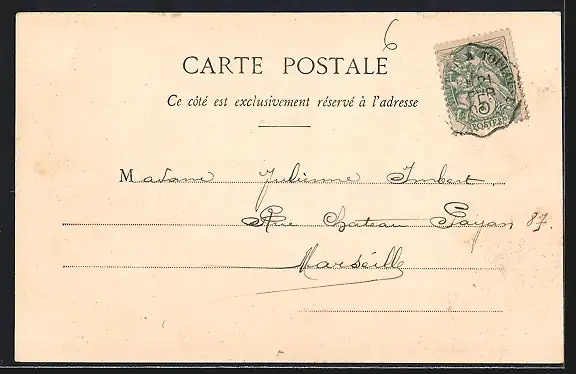 6
CARTE POSTALE
Ce côté est exclusivement réservé à l'adresse
Madame Julienne Imbert
Rue Chateau Payan 87.
Marseille
5
POSTES